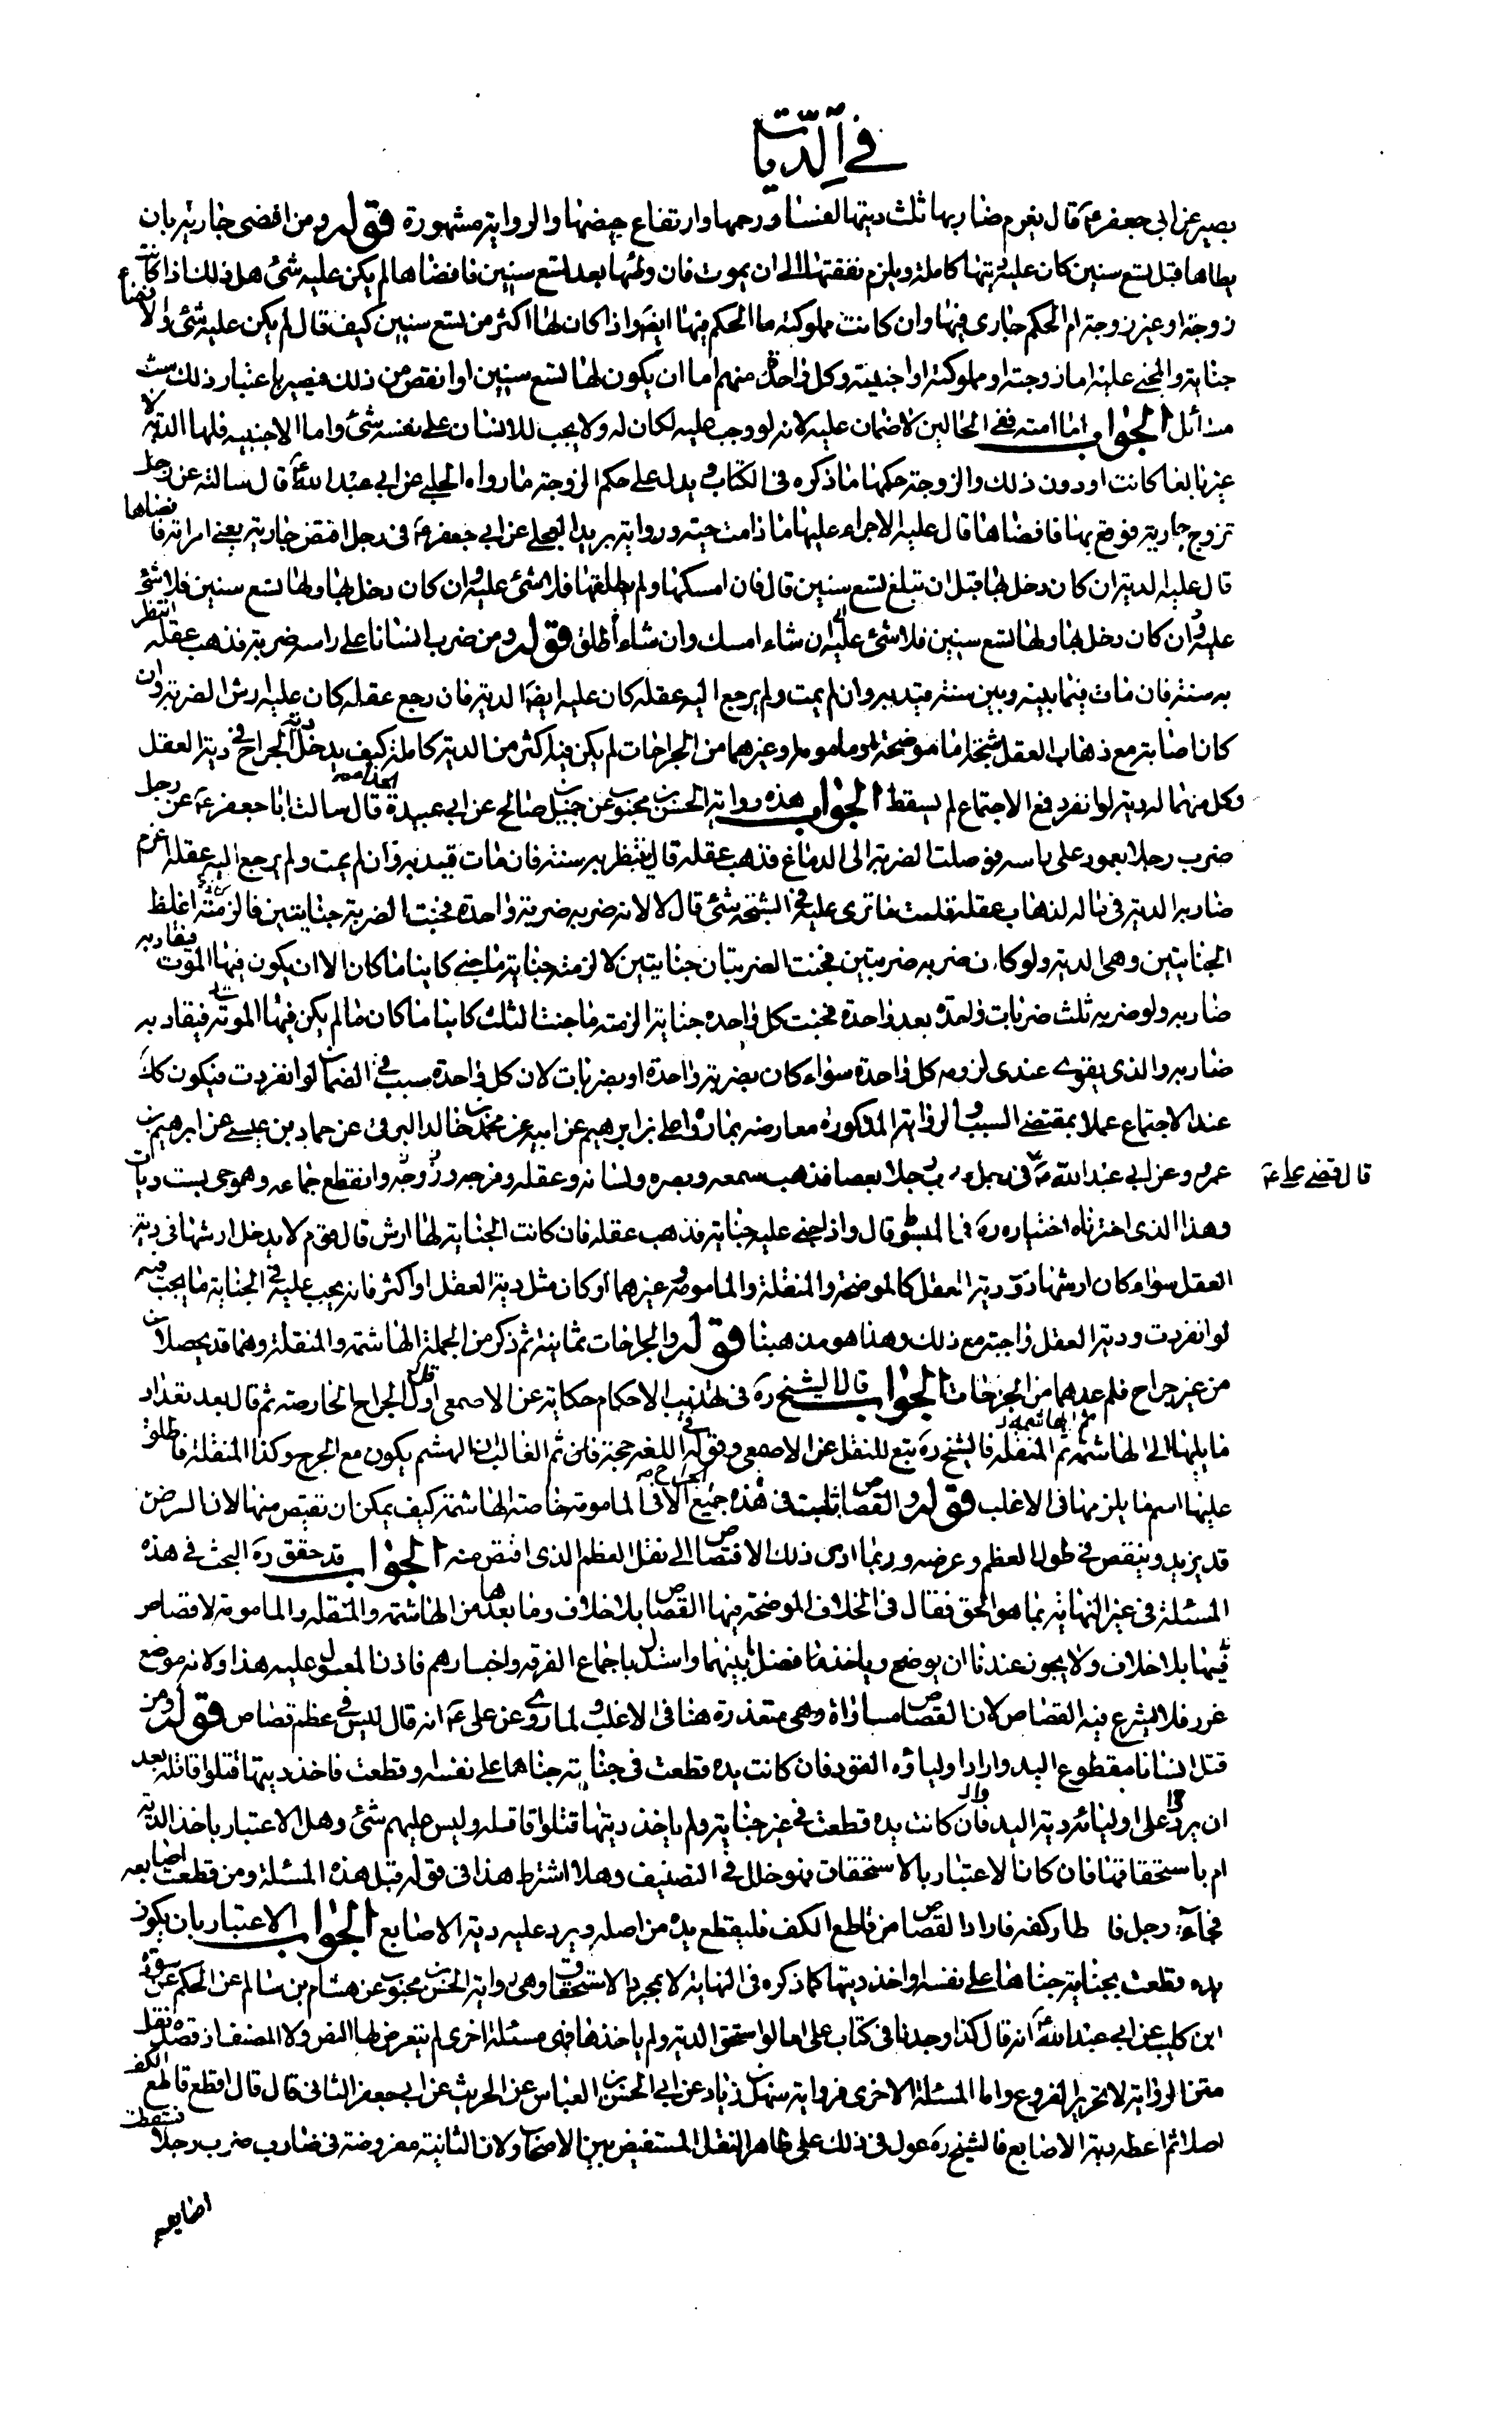 في الديات
بصير عن ابي جعفر ع قال يغرم ضاربها ثلث ديتها لفساد رحمها وارتفاع حيضها والرواية مشهورة قوله ومن افضى جارية بان
يطاها قبل تسع سنين كان عليه ديتها كاملة ويلزم نفقتها الى ان يموت فان وطئها بعد تسع سنين فافضاها لم يكن عليه شئ هل ذلك اذا كانت
زوجة او غير زوجة ام الحكم جارى فيها وان كانت مملوكته ما الحكم فيها ايضا واذا كان لها اكثر من تسع سنين كيف قال لم يكن عليه شئ والافضاء
جناية والمجنى عليه اما زوجته او مملوكته او اجنبية وكل واحدة منهم اما ان يكون لها تسع سنين او انقص من ذلك فيصير باعتبار ذلك ست
مسائل الجواب اما امته ففى الحالين لا ضمان عليه لانه لو وجب عليه لكان له ولا يجب للانسان على نفسه شئ واما الاجنبية فلها الدية لا
غير بالغا كانت او دون ذلك والزوجة حكمها ما ذكره فى الكتاب ويدل على حكم الزوجة ما رواه الحلبي عن ابي عبد الله ع قال سالته عن رجل
تزوج جارية فوقع بها فافضاها قال عليه الاجراء عليها ما دامت حية ورواية بريد العجلي عن ابي جعفر ع فى رجل افتض جارية يعنى امراته فافضاها
قال عليه الدية ان كان دخل بها قبل ان تبلغ تسع سنين قال فان امسكها ولم يطلقها فلا شئ عليه وان كان دخل بها ولها تسع سنين فلا شئ
عليه وان كان دخل بها ولها تسع سنين فلا شئ عليه ان شاء امسك وان شاء طلق قوله ومن ضرب انسانا على راسه ضربة فذهب عقله انتظر
به سنة فان مات فيما بينه وبين سنة قيد به وان لم يمت ولم يرجع اليه عقله كان عليه ايضا الدية فان رجع عقله كان عليه ارش الضربة وان
كان اصابه مع ذهاب العقل شجة اما موضحة او مامومة او غيرهما من الجراحات لم يكن فيه اكثر من الدية كاملة كيف يدخل دية الجراح في دية العقل
وكل منهما له دية لو انفرد فمع الاجتماع لم يسقط الجواب هذه رواية الحسن بن محبوب عن جميل بن صالح عن ابي عبيدة الحذاء قال سالت ابا جعفر ع عن رجل
ضرب رجلا بعمود على راسه فوصلت الضربة الى الدماغ فذهب عقله قال ينتظر به سنة فان مات قيد به وان لم يمت ولم يرجع اليه عقله اغرم
ضاربه الدية فى ماله لذهاب عقله قلت فما ترى عليه في الشجة شئ قال لا لانه ضربه ضربة واحدة فجنت الضربة جنايتين فالزمته اغلظ
الجنايتين وهى الدية ولو كان ضربه ضربتين فجنت الضربتان جنايتين لالزمته جناية ما جنى كاينا ما كان الا ان يكون فيها الموت فيقاد به
ضاربه ولو ضربه ثلث ضربات واحدة بعد واحدة فجنت كل واحدة جناية الزمته ما جنت الثلث كاينا ما كان ما لم يكن فيها الموت فيقاد به
ضاربه والذى يقوى عندى لزوم كل واحدة سواء كان بضربة واحدة او بضربات لان كل واحدة سبب في الضمان لو انفردت فيكون كك
عند الاجتماع عملا بمقتضى السبب والرواية المذكورة معارضة بما رواه علي بن ابرهيم عن ابيه عن محمد بن خالد البرقى عن حماد بن عيسى عن ابرهيم بن
عمر وعن ابي عبد الله ع قال قضى على ع فى رجل ضرب رجلا بعصا فذهب سمعه وبصره ولسانه وعقله وفرجه وانقطع جماعه وهو حى بست ديات
وهذا الذى اخترناه اختياره ره فى المبسوط قال واذا جنى عليه جناية فذهب عقله فان كانت الجناية لها ارش قال قوم لا يدخل ارشها فى دية
العقل سواء كان ارشها دون دية العقل كالموضحة والمنقلة والمامومة وغيرهما او كان مثل دية العقل او اكثر فانه يجب عليه في الجناية ما يجب فيه
لو انفردت ودية العقل واجبة مع ذلك وهذا هو مذهبنا قوله والجراحات ثمانية ثم ذكر من الجملة الهاشمة والمنقلة وهما قد يحصلان
من غير جراح فلم عدهما من الجراحات الجواب قال الشيخ ره فى تهذيب الاحكام حكاية عن الاصمعى اول الجراح الخارصة ثم قال بعد تعداد
ما يليها الى الهاشمة ثم المنقلة فالشيخ ره تبع للنقل عن الاصمعى وقوله في اللغة حجة فان ثم الغالب ان الهشم يكون مع الجرح وكذا المنقلة فاطلق
عليها اسم ما يلزمها فى الاغلب قوله والقصاص ثابت فى هذه جميع الجراح الا فى المامومة خاصة الهاشمة كيف يمكن ان تقتص منها لان الرض
قد يزيد وينقص فى طول العظم وعرضه وربما ادى ذلك الاقتصاص الى نقل العظم الذى اقتص منه الجواب قد حقق ره البحث فى هذه
المسئلة فى غير النهاية بما هو الحق فقال فى الخلاف الموضحة فيها القصاص بلا خلاف وما بعدها من الهاشمة والمنقلة والمامومة لا قصاص
فيها بلا خلاف ولا يجوز عندنا ان يوضح وياخذ ما فضل بينهما واستدل باجماع الفرقة واخبارهم فاذن المعول عليه هذا ولانه موضع
غرر فلا يشرع فيه القصاص لان القصاص مساواة وهى متعذرة هنا فى الاغلب ولما روى عن على ع انه قال ليس في عظم قصاص قوله ومن
قتل انسانا مقطوع اليد واراد اولياؤه القود فان كانت يده قطعت فى جناية جناها على نفسه وقطعت فاخذ ديتها قتلوا قاتله بعد
ان يردوا على اوليائه دية اليد فان كانت يده قطعت في غير جناية ولم ياخذ ديتها قتلوا قاتله وليس عليهم شئ وهل الاعتبار باخذ الدية
ام باستحقاقها فان كان الاعتبار بالاستحقاق فهو خلل في التصنيف وهلا اشترط هذا فى قوله قبل هذه المسئلة ومن قطعت اصابعه
فجاءه رجل فاطار كفه فاراد القصاص من قاطع الكف فليقطع يده من اصله ويرد عليه دية الاصابع الجواب الاعتبار بان يكون
يده قطعت بجناية جناها على نفسه او اخذ ديتها كما ذكره فى النهاية لا بمجرد الاستحقاق وهى رواية الحسن بن محبوب عن هشام بن سالم عن سورة
ابن كليب عن ابي عبد الله ع انه قال كذا وجدنا فى كتاب على اما لو استحق الدية ولم ياخذها فهى مسئلة اخرى لم يتعرض لها النص ولا المصنف اذ قصده نقل
متن الرواية لا تحرير الفروع واما المسئلة الاخرى فرواية سهل بن زياد عن ابي الحسن بن العباس عن الحريش عن ابي جعفر الثانى قال قال اقطع قاطع الكف
اصلا ثم اعطه دية الاصابع فالشيخ ره عول فى ذلك على ظاهر النقل المستفيض بين الاصحاب ولان الثانية مفروضة فى ضارب ضرب رجلا فسقطت
اصابعه